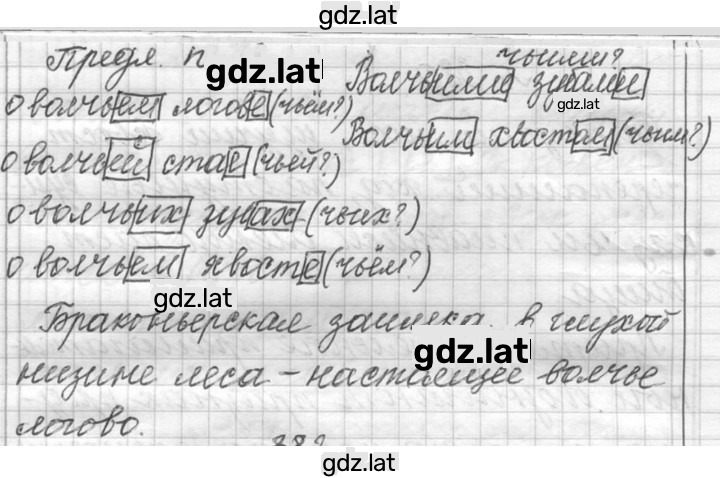 gdz.lat
Предл. п
чьими?
gdz.lat
Волчьими зубами
о волчьем логове (чьём?)
gdz.lat
Волчьим хвостом (чьим?)
о волчьей стае (чьей?)
о волчьих зубах (чьих?)
о волчьем хвосте (чьём?)
gdz.lat
Браконьерская заимка в глухой
gdz.lat
низине леса – настоящее волчье
логово.
gdz.lat